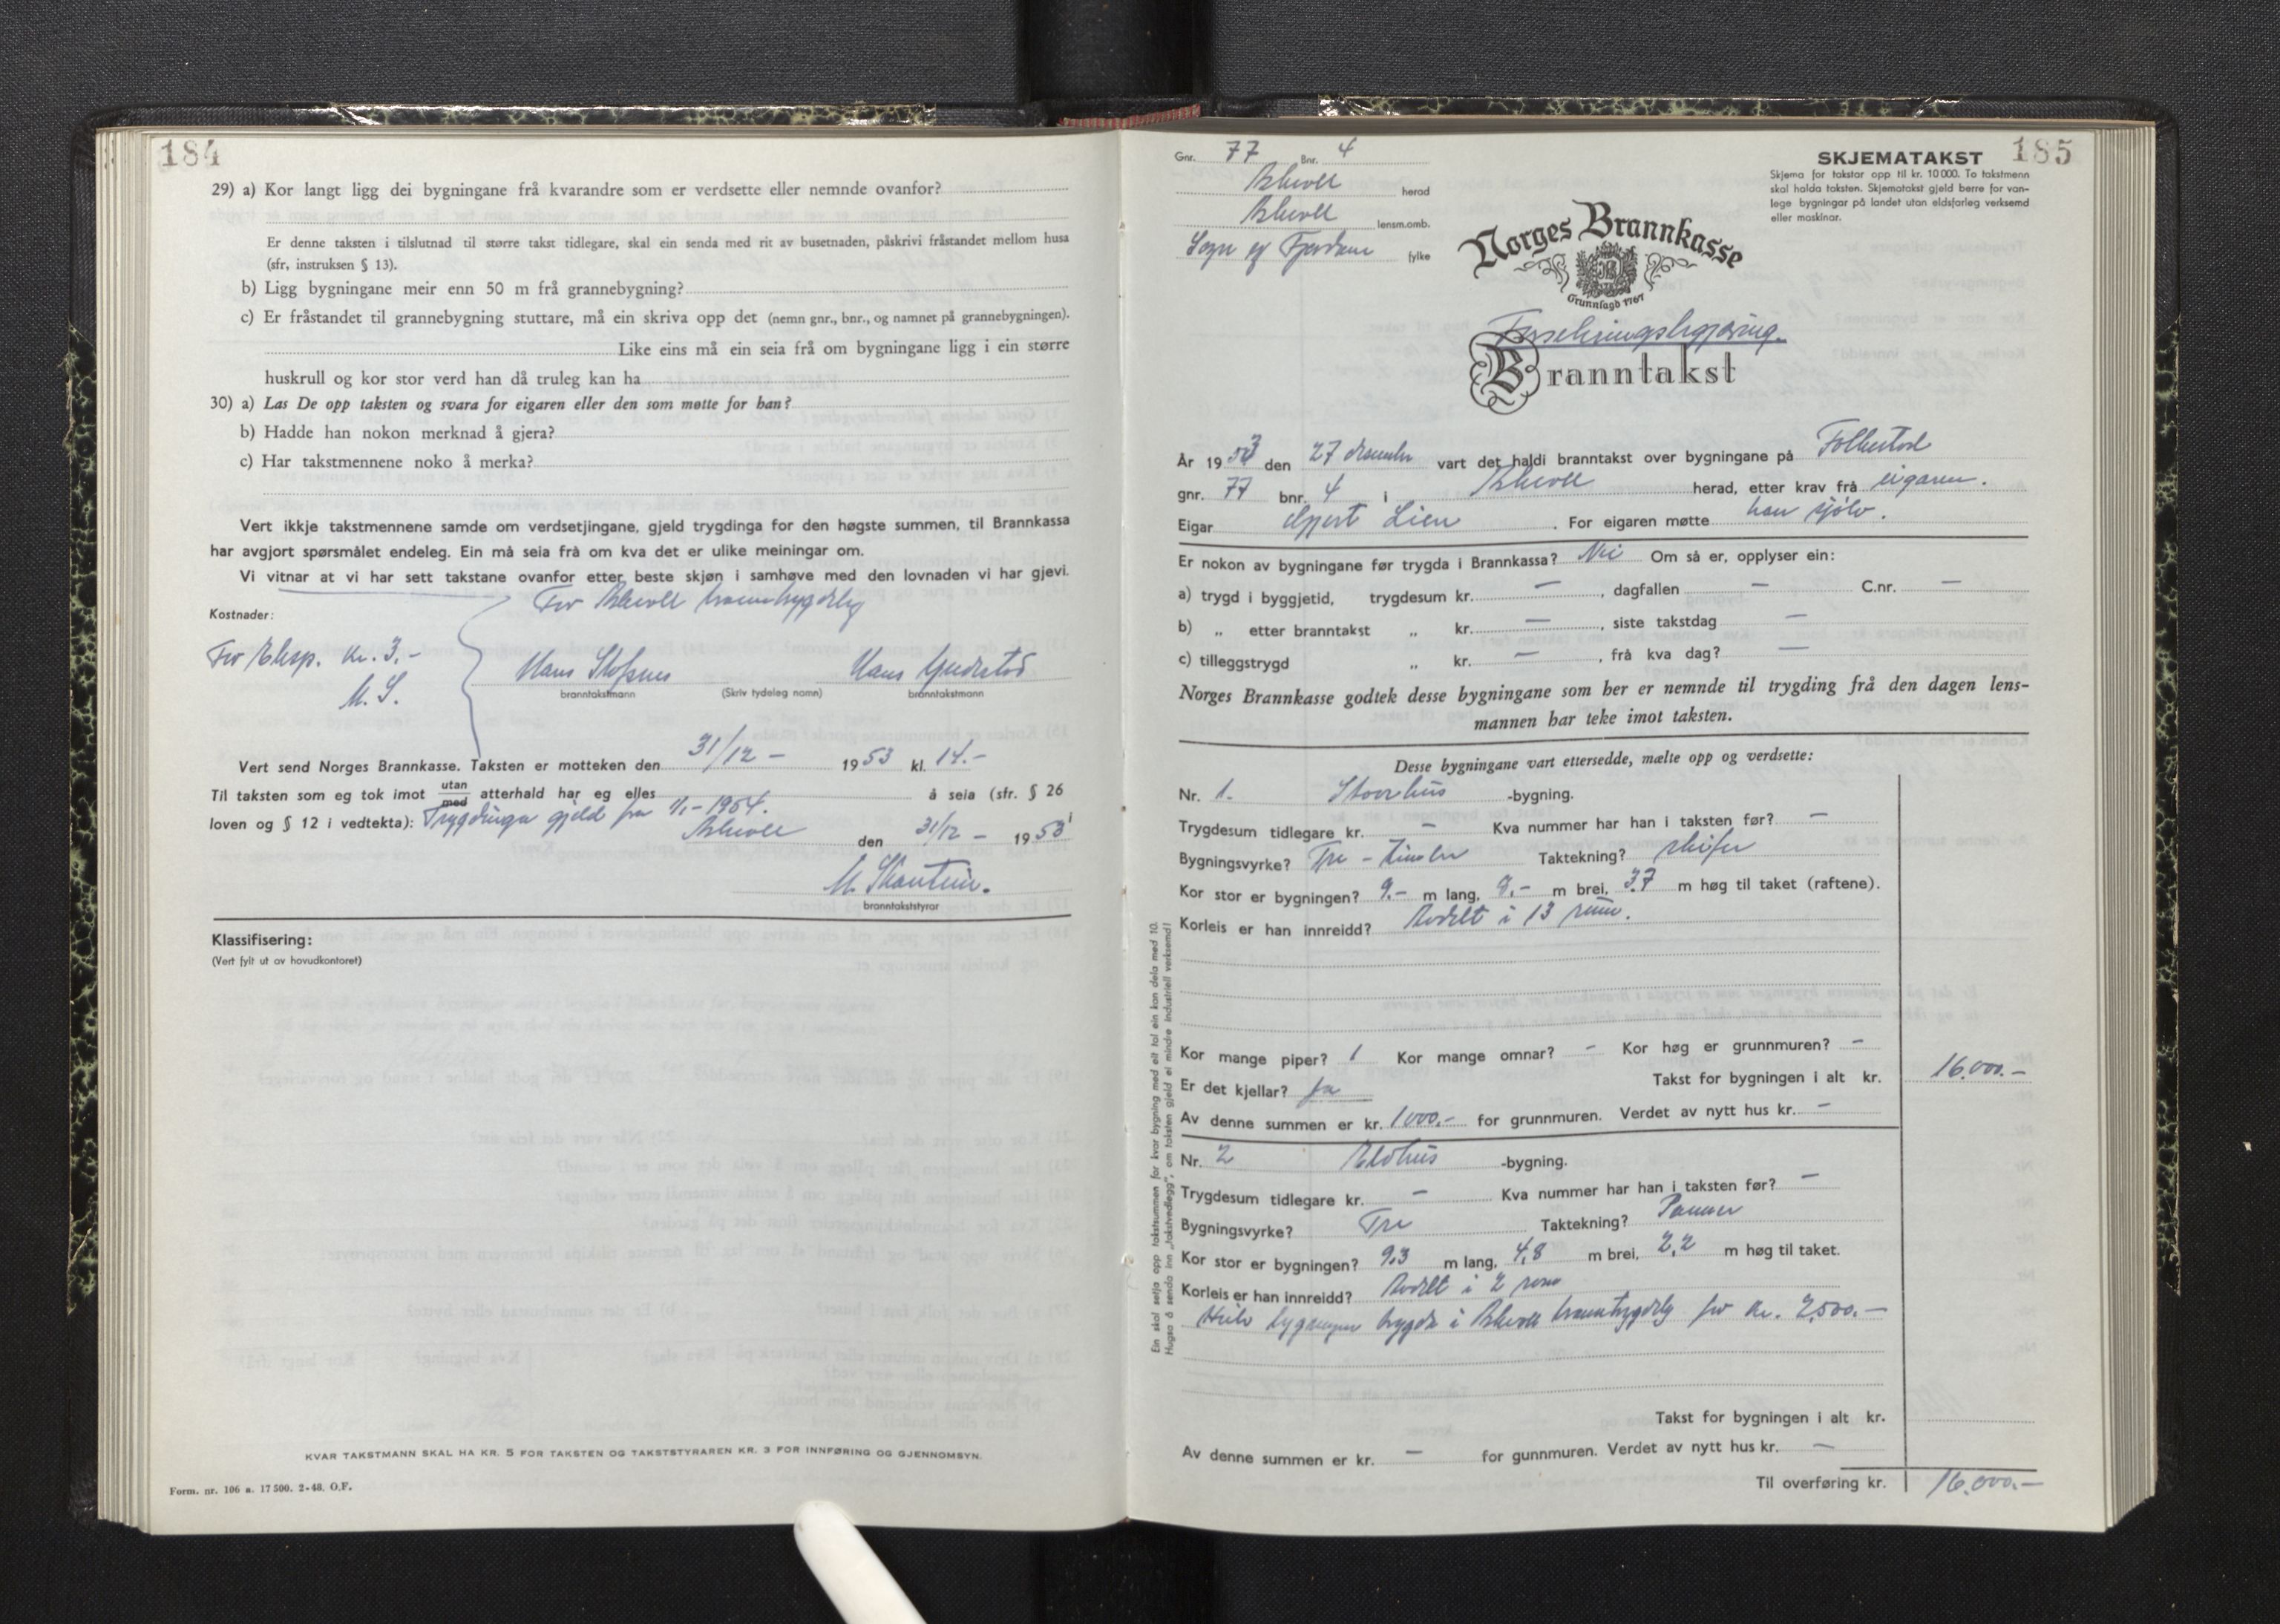 184
29) a) Kor langt ligg dei bygningane frå kvarandre som er verdsette eller nemnde ovanfor?
Er denne taksten i tilslutnad til større takst tidlegare, skal ein senda med rit av busetnaden, påskrivi fråstandet mellom husa
(sfr, instruksen § 13).
b) Ligg bygningane meir enn 50 m frå grannebygning?
c) Er fråstandet til grannebygning stuttare, må ein skriva opp det (nemn gnr., bnr., og namnet på grannebygningen).
Like eins må ein seia frå om bygningane ligg i ein større
huskrull og kor stor verd han då truleg kan ha
30) a) Las De opp taksten og svara for eigaren eller den som møtte for han?
b) Hadde han nokon merknad å gjera?
c) Har takstmennene noko å merka?
Vert ikkje takstmennene samde om verdsetjingane, gjeld trygdinga for den høgste summen, til Brannkassa
har avgjort spørsmålet endeleg. Ein må seia frå om kva det er ulike meiningar om.
Vi vitnar at vi har sett takstane ovanfor etter beste skjøn i samhøve med den lovnaden vi har gjevi.
For Askvoll branntrygdelag
Kostnader:
For Eksp. kr. 3.-
M. S.
Hans
Hans
branntakstmann (Skriv tydeleg namn) branntakstmann
Vert send Norges Brannkasse. Taksten er motteken den 31/12 - 1953 kl. 14.-
Til taksten som eg tok imot utan/med atterhald har eg elles å seia (sfr. § 26
loven og § 12 i vedtekta): Trygdinga gjeld fra 1/1 - 1954.
Askvoll den 31/12 - 1953
branntakststyrar
Klassifisering:
(Vert fylt ut av hovudkontoret)
KVAR TAKSTMANN SKAL HA KR. 5 FOR TAKSTEN OG TAKSTSTYRAREN KR. 3 FOR INNFØRING OG GJENNOMSYN.
Form. nr. 106 a. 17 500. 2-48. O.F.
185
Gnr. 77 Bnr. 4
Askvoll herad
Askvoll lensm.omb.
Sogn og Fjordane fylke
SKJEMATAKST
Skjema for takstar opp til kr. 10 000. To takstmenn
skal halda taksten. Skjematakst gjeld berre for van-
lege bygningar på landet utan eldsfarleg verksemd
eller maskinar.
Norges Brannkasse
Grunnlagd 1767
Forsikringsbegjæring.
Branntakst
År 1953 den 27 desember vart det haldi branntakst over bygningane på Folkestad
gnr. 77 bnr. 4 i Askvoll herad, etter krav frå eigaren.
Eigar Lien. For eigaren møtte han sjølv.
Er nokon av bygningane før trygda i Brannkassa? Nei Om så er, opplyser ein:
a) trygd i byggjetid, trygdesum kr. — , dagfallen — C.nr. —
b) „ etter branntakst „ kr. — , siste takstdag —
c) tilleggstrygd „ kr. — , frå kva dag? —
Norges Brannkasse godtek desse bygningane som her er nemnde til trygding frå den dagen lens-
mannen har teke imot taksten.
Desse bygningane vart ettersedde, mælte opp og verdsette:
Nr. 1. Stovehus -bygning.
Trygdesum tidlegare kr. — Kva nummer har han i taksten før? —
Bygningsvyrke? Tre - tømber Taktekning? skifer
Kor stor er bygningen? 9.- m lang, 8.- m brei, 3.7 m høg til taket (raftene).
Korleis er han innreidd? Avdelt i 13 rum.
Kor mange piper? 1 Kor mange omnar? - Kor høg er grunnmuren? -
Er det kjellar? ja Takst for bygningen i alt kr. 16.000.-
Av denne summen er kr. 1000.- for grunnmuren. Verdet av nytt hus kr. -
Nr. 2 Eldhus -bygning.
Trygdesum tidlegare kr. — Kva nummer har han i taksten før? —
Bygningsvyrke? Tre Taktekning? Panner
Kor stor er bygningen? 9.3 m lang, 4,8 m brei, 2,2 m høg til taket.
Korleis er han innreidd? Avdelt i 2 rom
bygningen trygda i Askvoll branntrygdelag for kr. 2,500.-
Takst for bygningen i alt kr.
Av denne summen er kr. — for gunnmuren. Verdet av nytt hus kr. —
Til overføring kr. 16.000.-
Ein skal setja opp takstsummen for kvar bygning med eit tal ein kan dela med 10.
Hugsa å senda inn „takstvedlegg", om taksten gjeld ei mindre industriell verksemd!